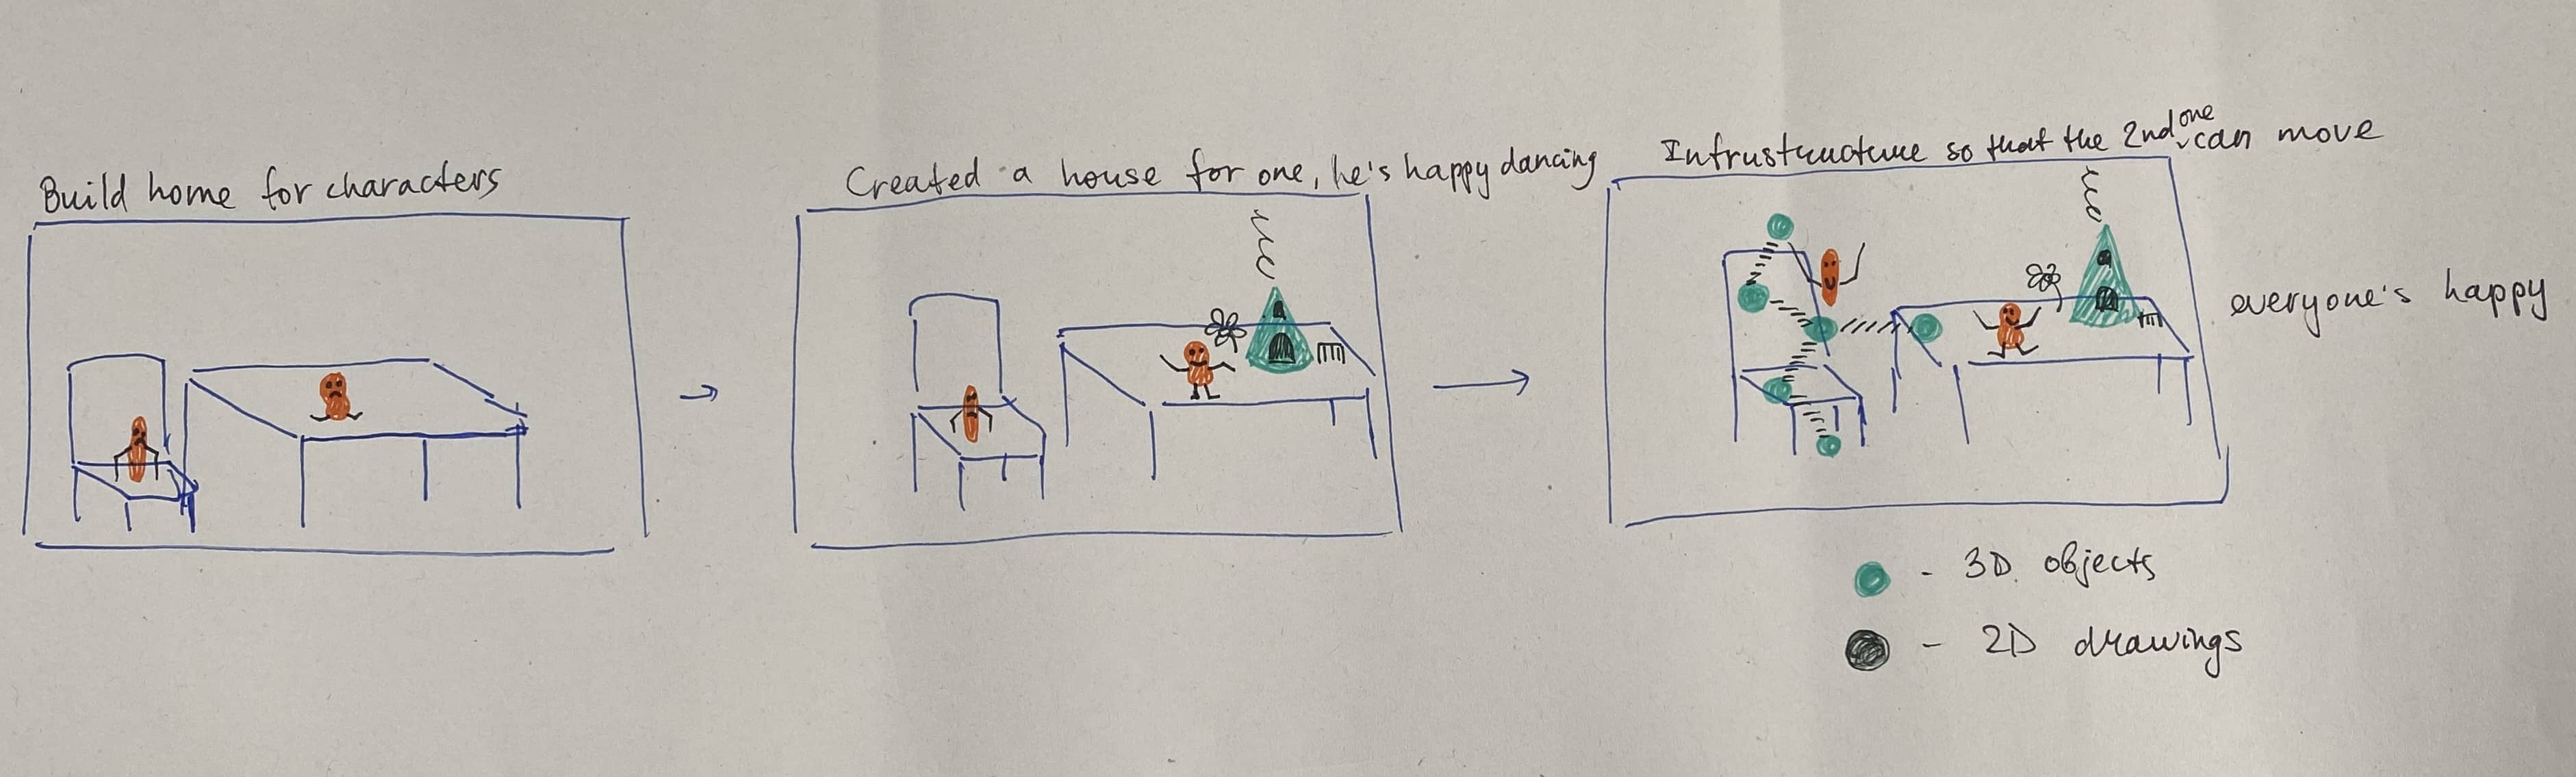 Build home for characters
Created a house for one, he's happy dancing
Infrustructure so that the 2nd one can move
everyone's happy
- 3D objects
- 2D drawings